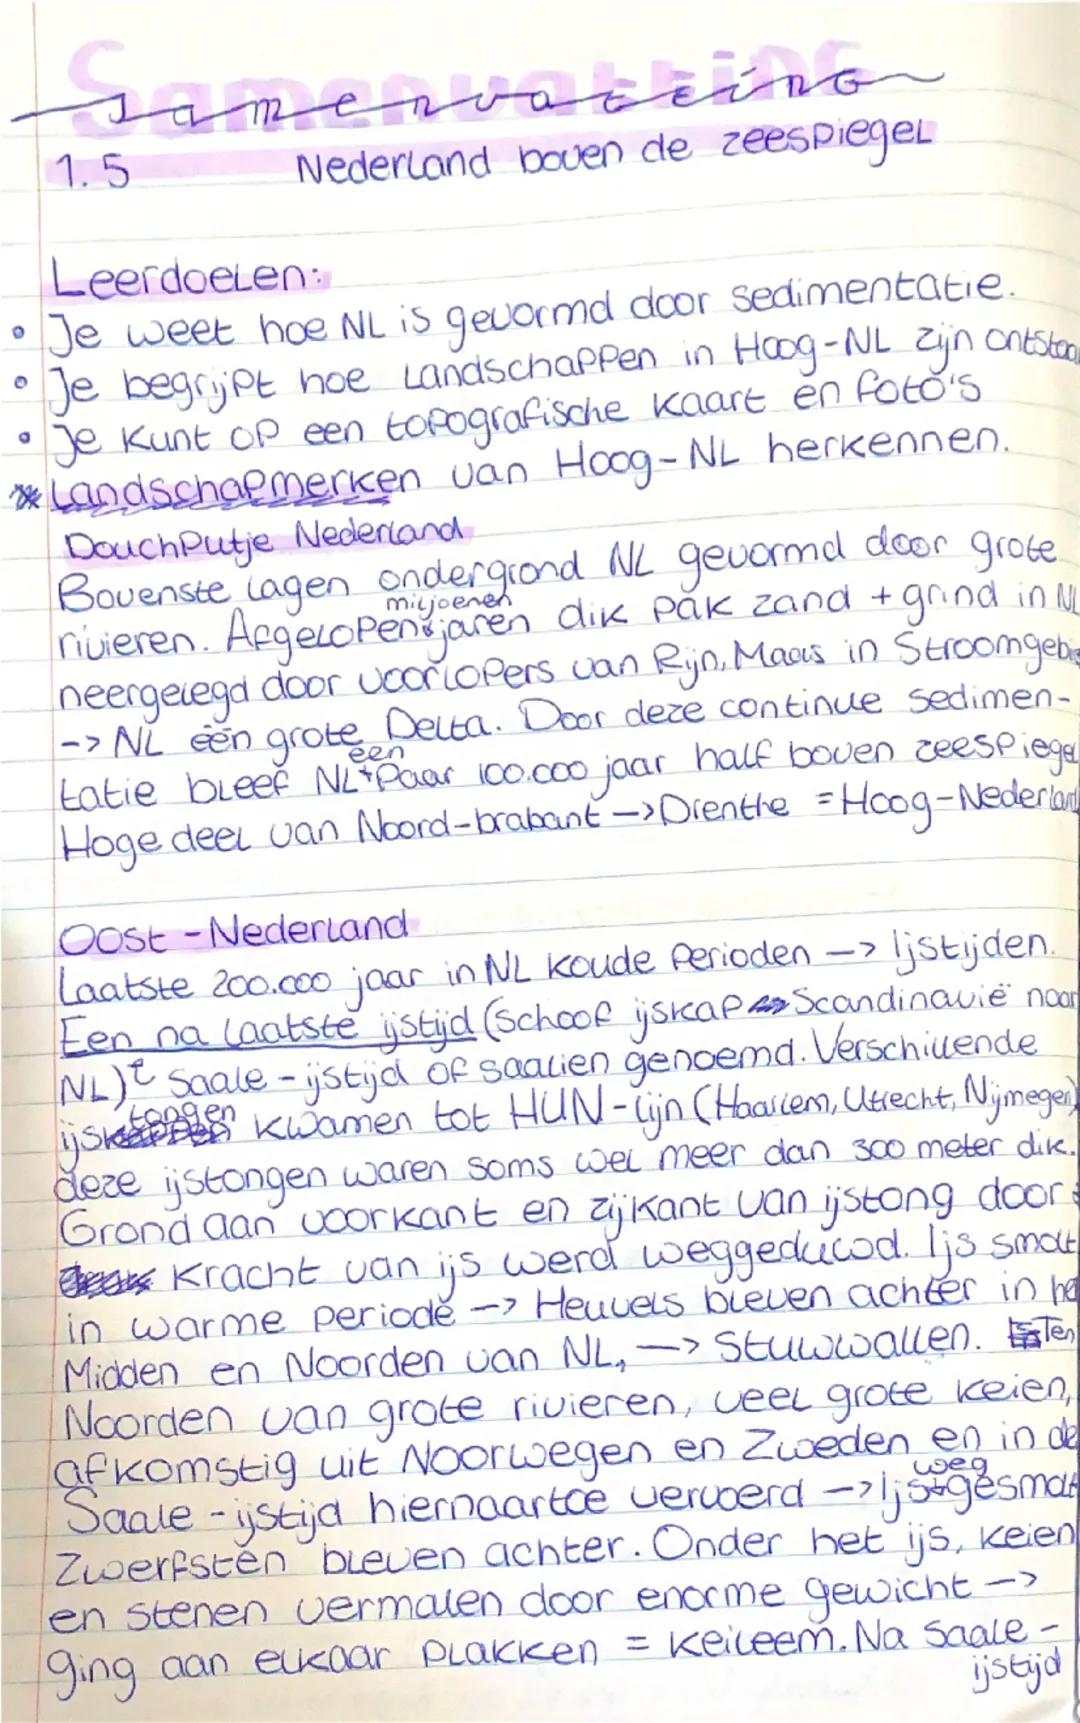 Samenvatting
1.5 Nederland boven de zeespiegel
Leerdoelen:
• Je weet hoe NL is gevormd door sedimentatie.
• Je begrijpt hoe landschappen in Hoog-NL zijn ontstaa
• Je kunt op een topografische kaart en foto's
* Landschapmerken van Hoog-NL herkennen.
Douchputje Nederland
Bovenste lagen ondergrond NL gevormd door grote
miljoenen
rivieren. Afgelopen jaren dik pak zand + grind in NL
neergelegd door voorlopers van Rijn, Maas in Stroomgebie
-> NL één grote Delta. Door deze continue sedimen-
een
tatie bleef NL + paar 100.000 jaar half boven zeespiegel
Hoge deel van Noord-brabant -> Drenthe = Hoog-Nederland
Oost-Nederland
Laatste 200.000 jaar in NL koude perioden -> Ijstijden.
Een na laatste ijstijd (schoof ijskap Scandinavië naar
NL) Saale-ijstijd of saalien genoemd. Verschillende
tongen
ijs kwamen tot HUN-lijn (Haarlem, Utrecht, Nijmegen)
deze ijstongen waren soms wel meer dan 300 meter dik.
Grond aan voorkant en zijkant van ijstong door
kracht van ijs werd weggeduwd. Ijs smolt
in warme periode -> Heuvels bleven achter in he
Midden en Noorden van NL, -> Stuwwallen. Ten
Noorden van grote rivieren, veel grote keien,
afkomstig uit Noorwegen en Zweden en in de
weg
Saale-ijstijd hiernaartoe vervoerd -> Ijs + gesmolt
Zwerfsten bleven achter. Onder het ijs, keien
en stenen vermalen door enorme gewicht ->
ging aan elkaar plakken = keileem. Na Saale-
ijstijd